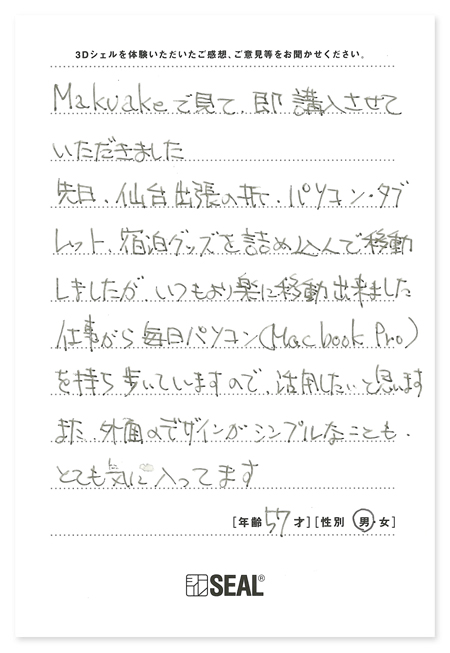 3Dシェルを体験いただいたご感想、ご意見等をお聞かせください。
Makuakeで見て、即 講入させて
いただきました
先日、仙台出張の折に、パソコン・タブ
レット、宿泊グッズを詰め込んで移動
しましたが、いつもより楽に移動出来ました
仕事がら毎日パソコン(Macbook Pro)
を持ち歩いていますので、活用したいと思います
また、外面のデザインがシンプルなことも、
とても気に入ってます
[年齢 57 才] [性別 男・女]
SEAL®